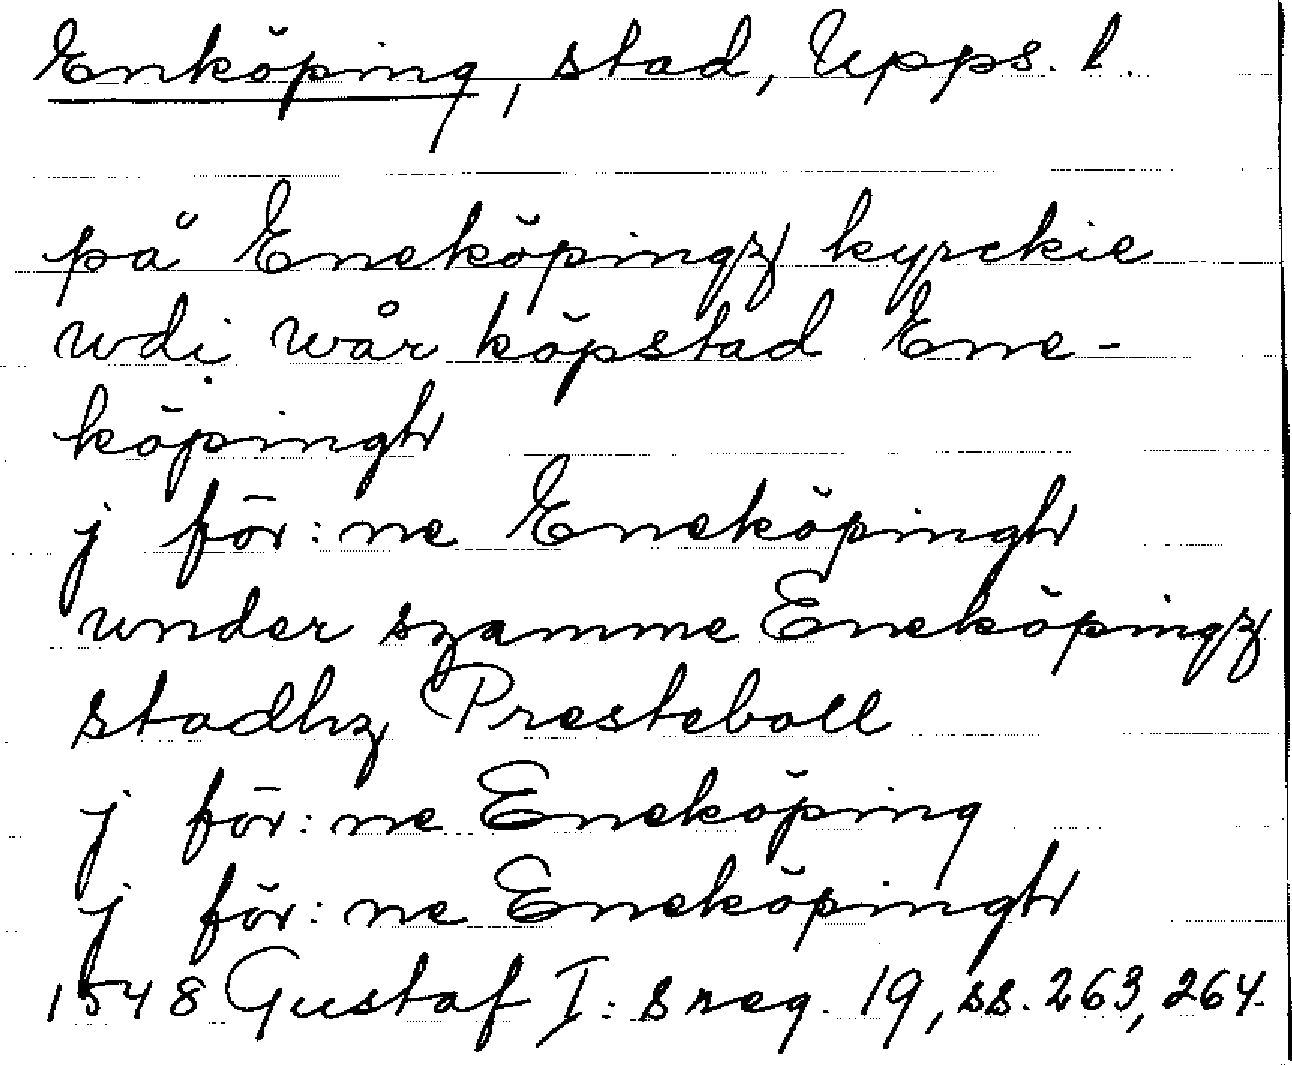 Enköping, stad, Upps. l.
på Eneköpingz kyrckie
wdi wår köpstad Ene-
köpingh
j för:ne Eneköpingh
under szamme Eneköpingz
stadhz Presteboll
j för:ne Eneköping
j för:ne Eneköpingh
1548 Gustaf I:s reg. 19, ss. 263, 264.